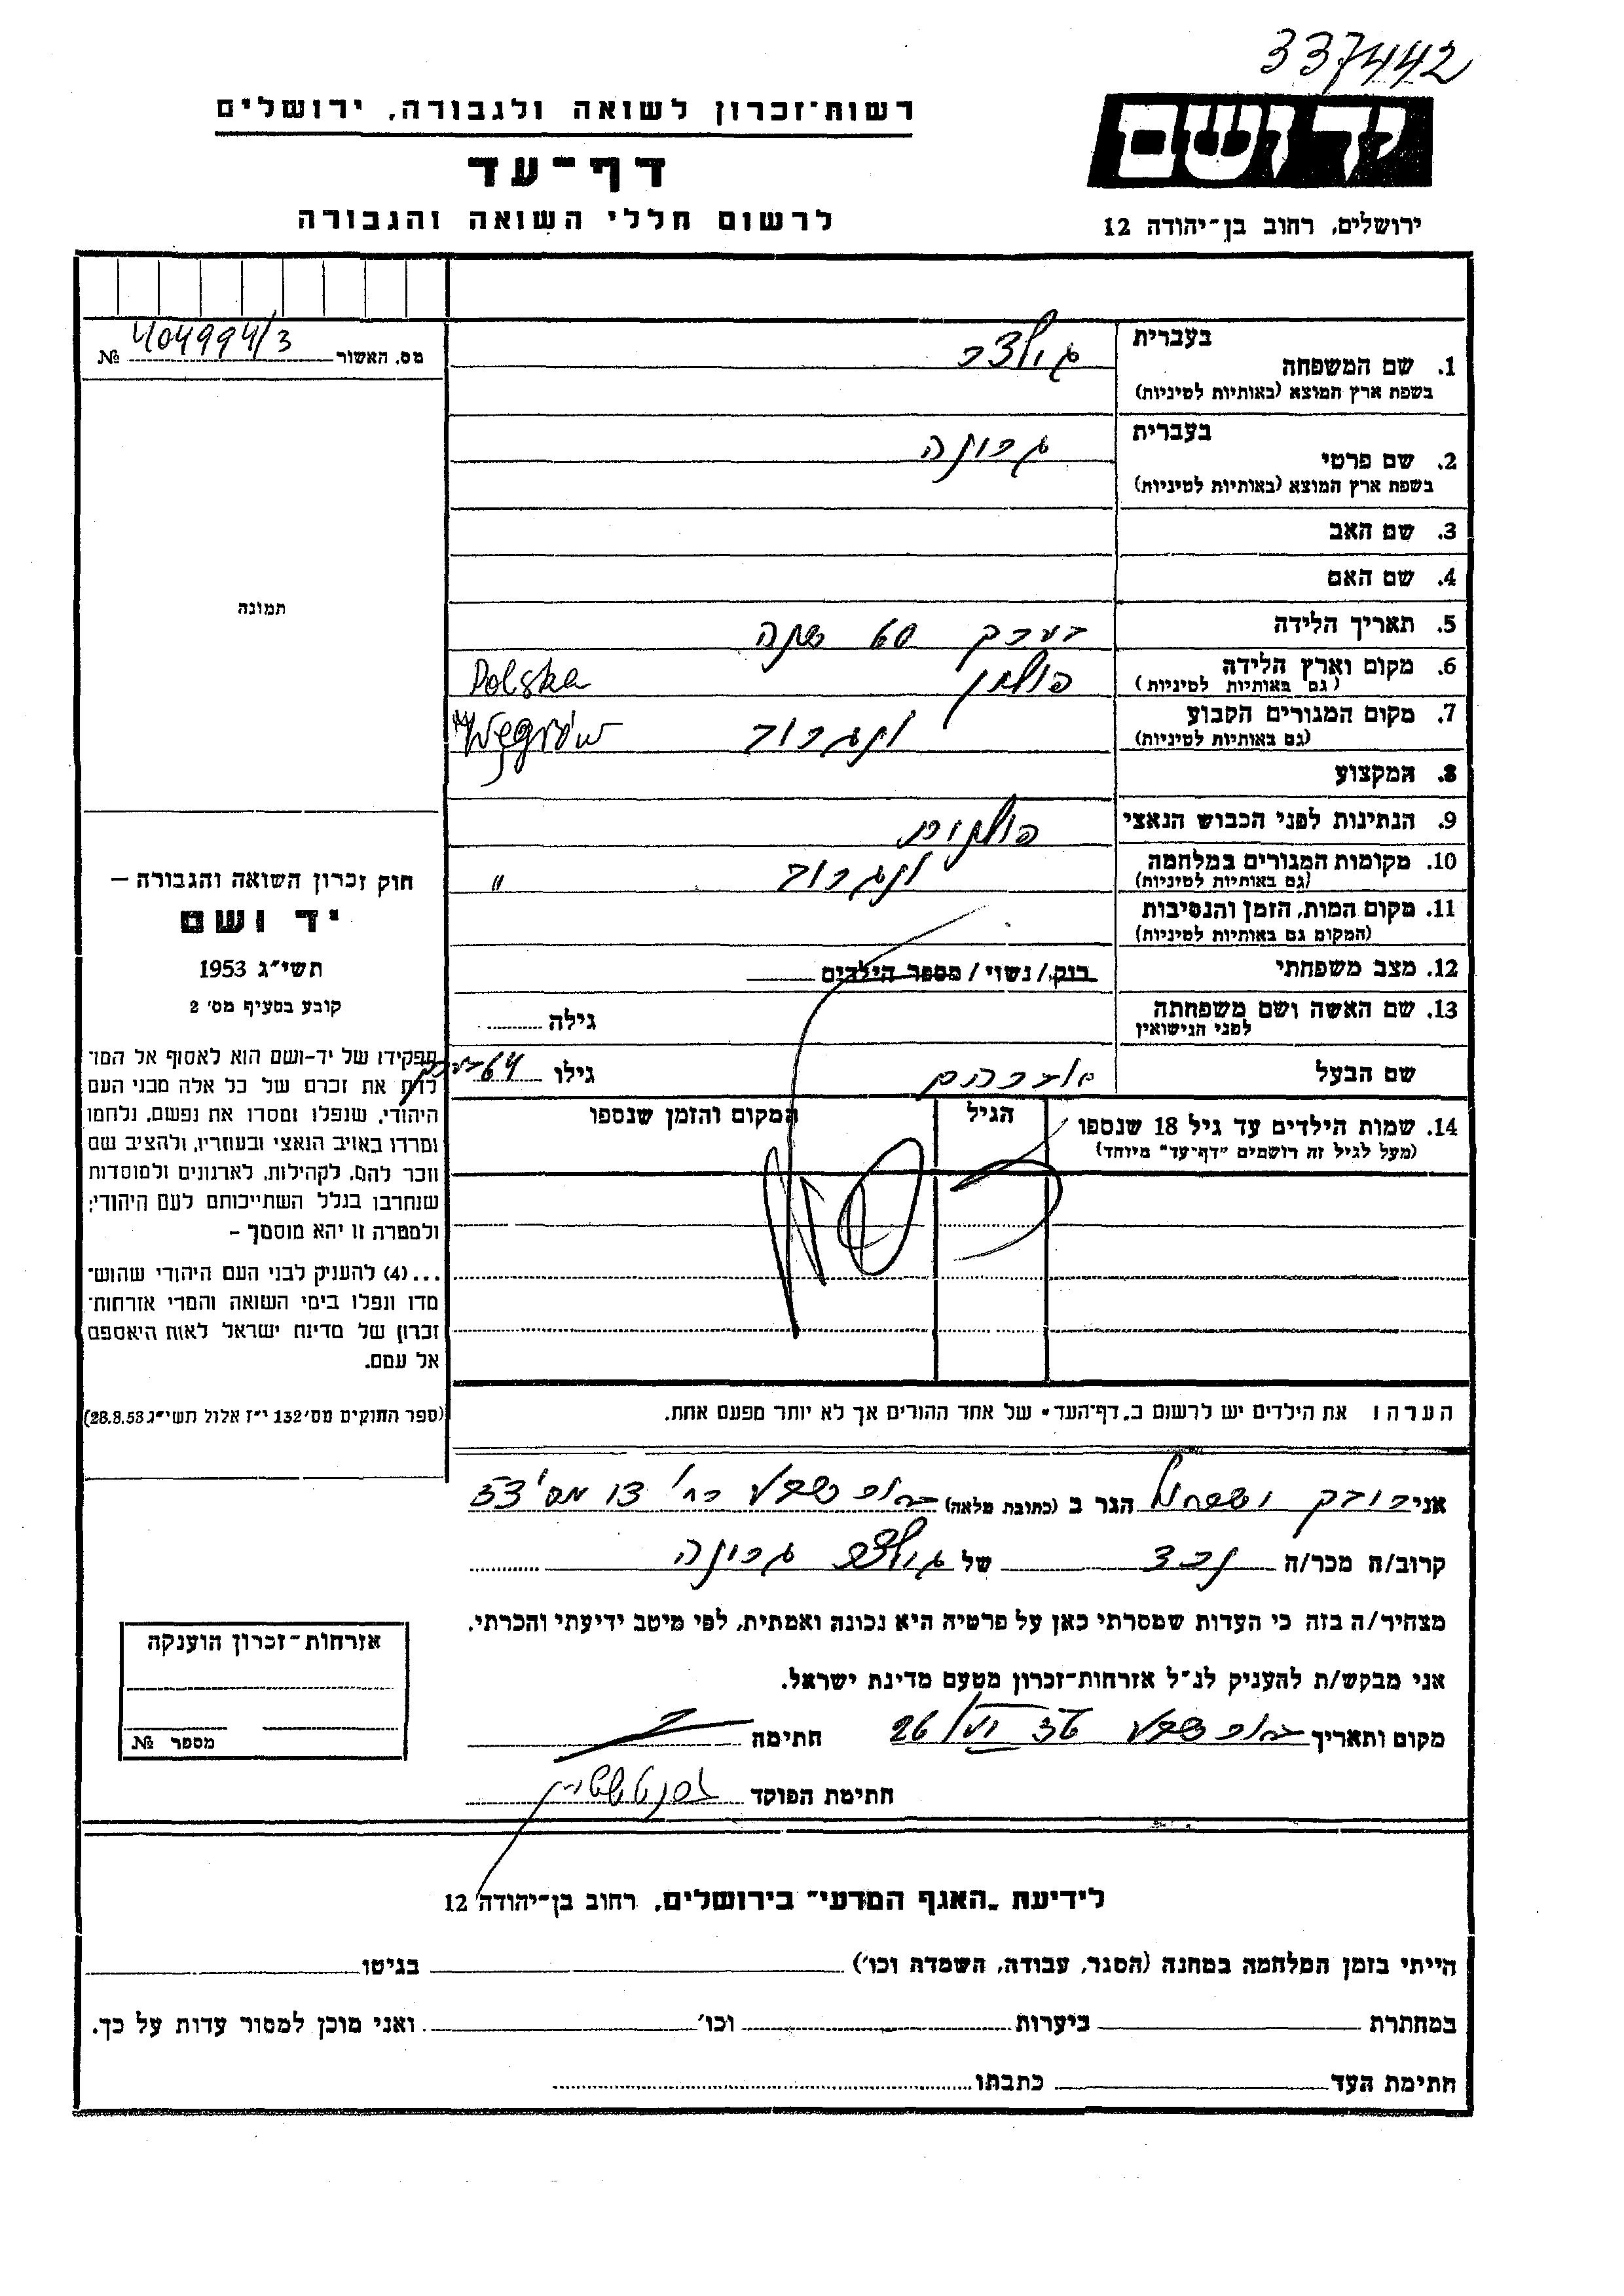 337442
יד ושם
ירושלים, רחוב בן-יהודה 12
רשות-זכרון לשואה ולגבורה, ירושלים
דף-עד
לרשום חללי השואה והגבורה
מס. האשור 404994/3 №
תמונה
חוק זכרון השואה והגבורה —
יד ושם
תשי"ג 1953
קובע בסעיף מס' 2
תפקידו של יד-ושם הוא לאסוף אל המו-
לדת את זכרם של כל אלה מבני העם
היהודי, שנפלו ומסרו את נפשם, נלחמו
ומרדו באויב הנאצי ובעוזריו, ולהציב שם
וזכר להם, לקהילות, לארגונים ולמוסדות
שנחרבו בגלל השתייכותם לעם היהודי;
ולמטרה זו יהא מוסמך —
...(4) להעניק לבני העם היהודי שהוש-
מדו ונפלו בימי השואה והמרי אזרחות-
זכרון של מדינת ישראל לאות היאספם
אל עמם.
(ספר החוקים מס' 132 י"ז אלול תשי"ג 28.8.53)
בעברית
1. שם המשפחה
בשפת ארץ המוצא (באותיות לטיניות)
בעברית
2. שם פרטי
בשפת ארץ המוצא (באותיות לטיניות)
3. שם האב
4. שם האם
5. תאריך הלידה בערך 60 שנה
6. מקום וארץ הלידה פולין Polska
(גם באותיות לטיניות)
7. מקום המגורים הקבוע ונגרוב Węgrów
(גם באותיות לטיניות)
8. המקצוע
9. הנתינות לפני הכבוש הנאצי פולנית
10. מקומות המגורים במלחמה ונגרוב "
(גם באותיות לטיניות)
11. מקום המות, הזמן והנסיבות
(המקום גם באותיות לטיניות)
12. מצב משפחתי רוק / נשוי / מספר הילדים
13. שם האשה ושם משפחתה גילה
לפני הנישואין
שם הבעל אברהם גילו 64 בערך
14. שמות הילדים עד גיל 18 שנספו הגיל המקום והזמן שנספו
(מעל לגיל זה רושמים "דף-עד" מיוחד)
הערה: את הילדים יש לרשום ב"דף-העד" של אחד ההורים אך לא יותר מפעם אחת.
אני ישראל הגר ב (כתובת מלאה) באר שבע רח' 13 מס' 53
קרוב/ה מכר/ה נכד של
מצהיר/ה בזה כי העדות שמסרתי כאן על פרטיה היא נכונה ואמתית, לפי מיטב ידיעתי והכרתי.
אני מבקש/ת להעניק לנ"ל אזרחות-זכרון מטעם מדינת ישראל.
מקום ותאריך באר שבע חתימה
חתימת הפוקד
אזרחות-זכרון הוענקה
מספר №
לידיעת "האגף המדעי" בירושלים, רחוב בן-יהודה 12
הייתי בזמן המלחמה במחנה (הסגר, עבודה, השמדה וכו') בגיטו
במחתרת ביערות וכו' ואני מוכן למסור עדות על כך.
חתימת העד כתבתו